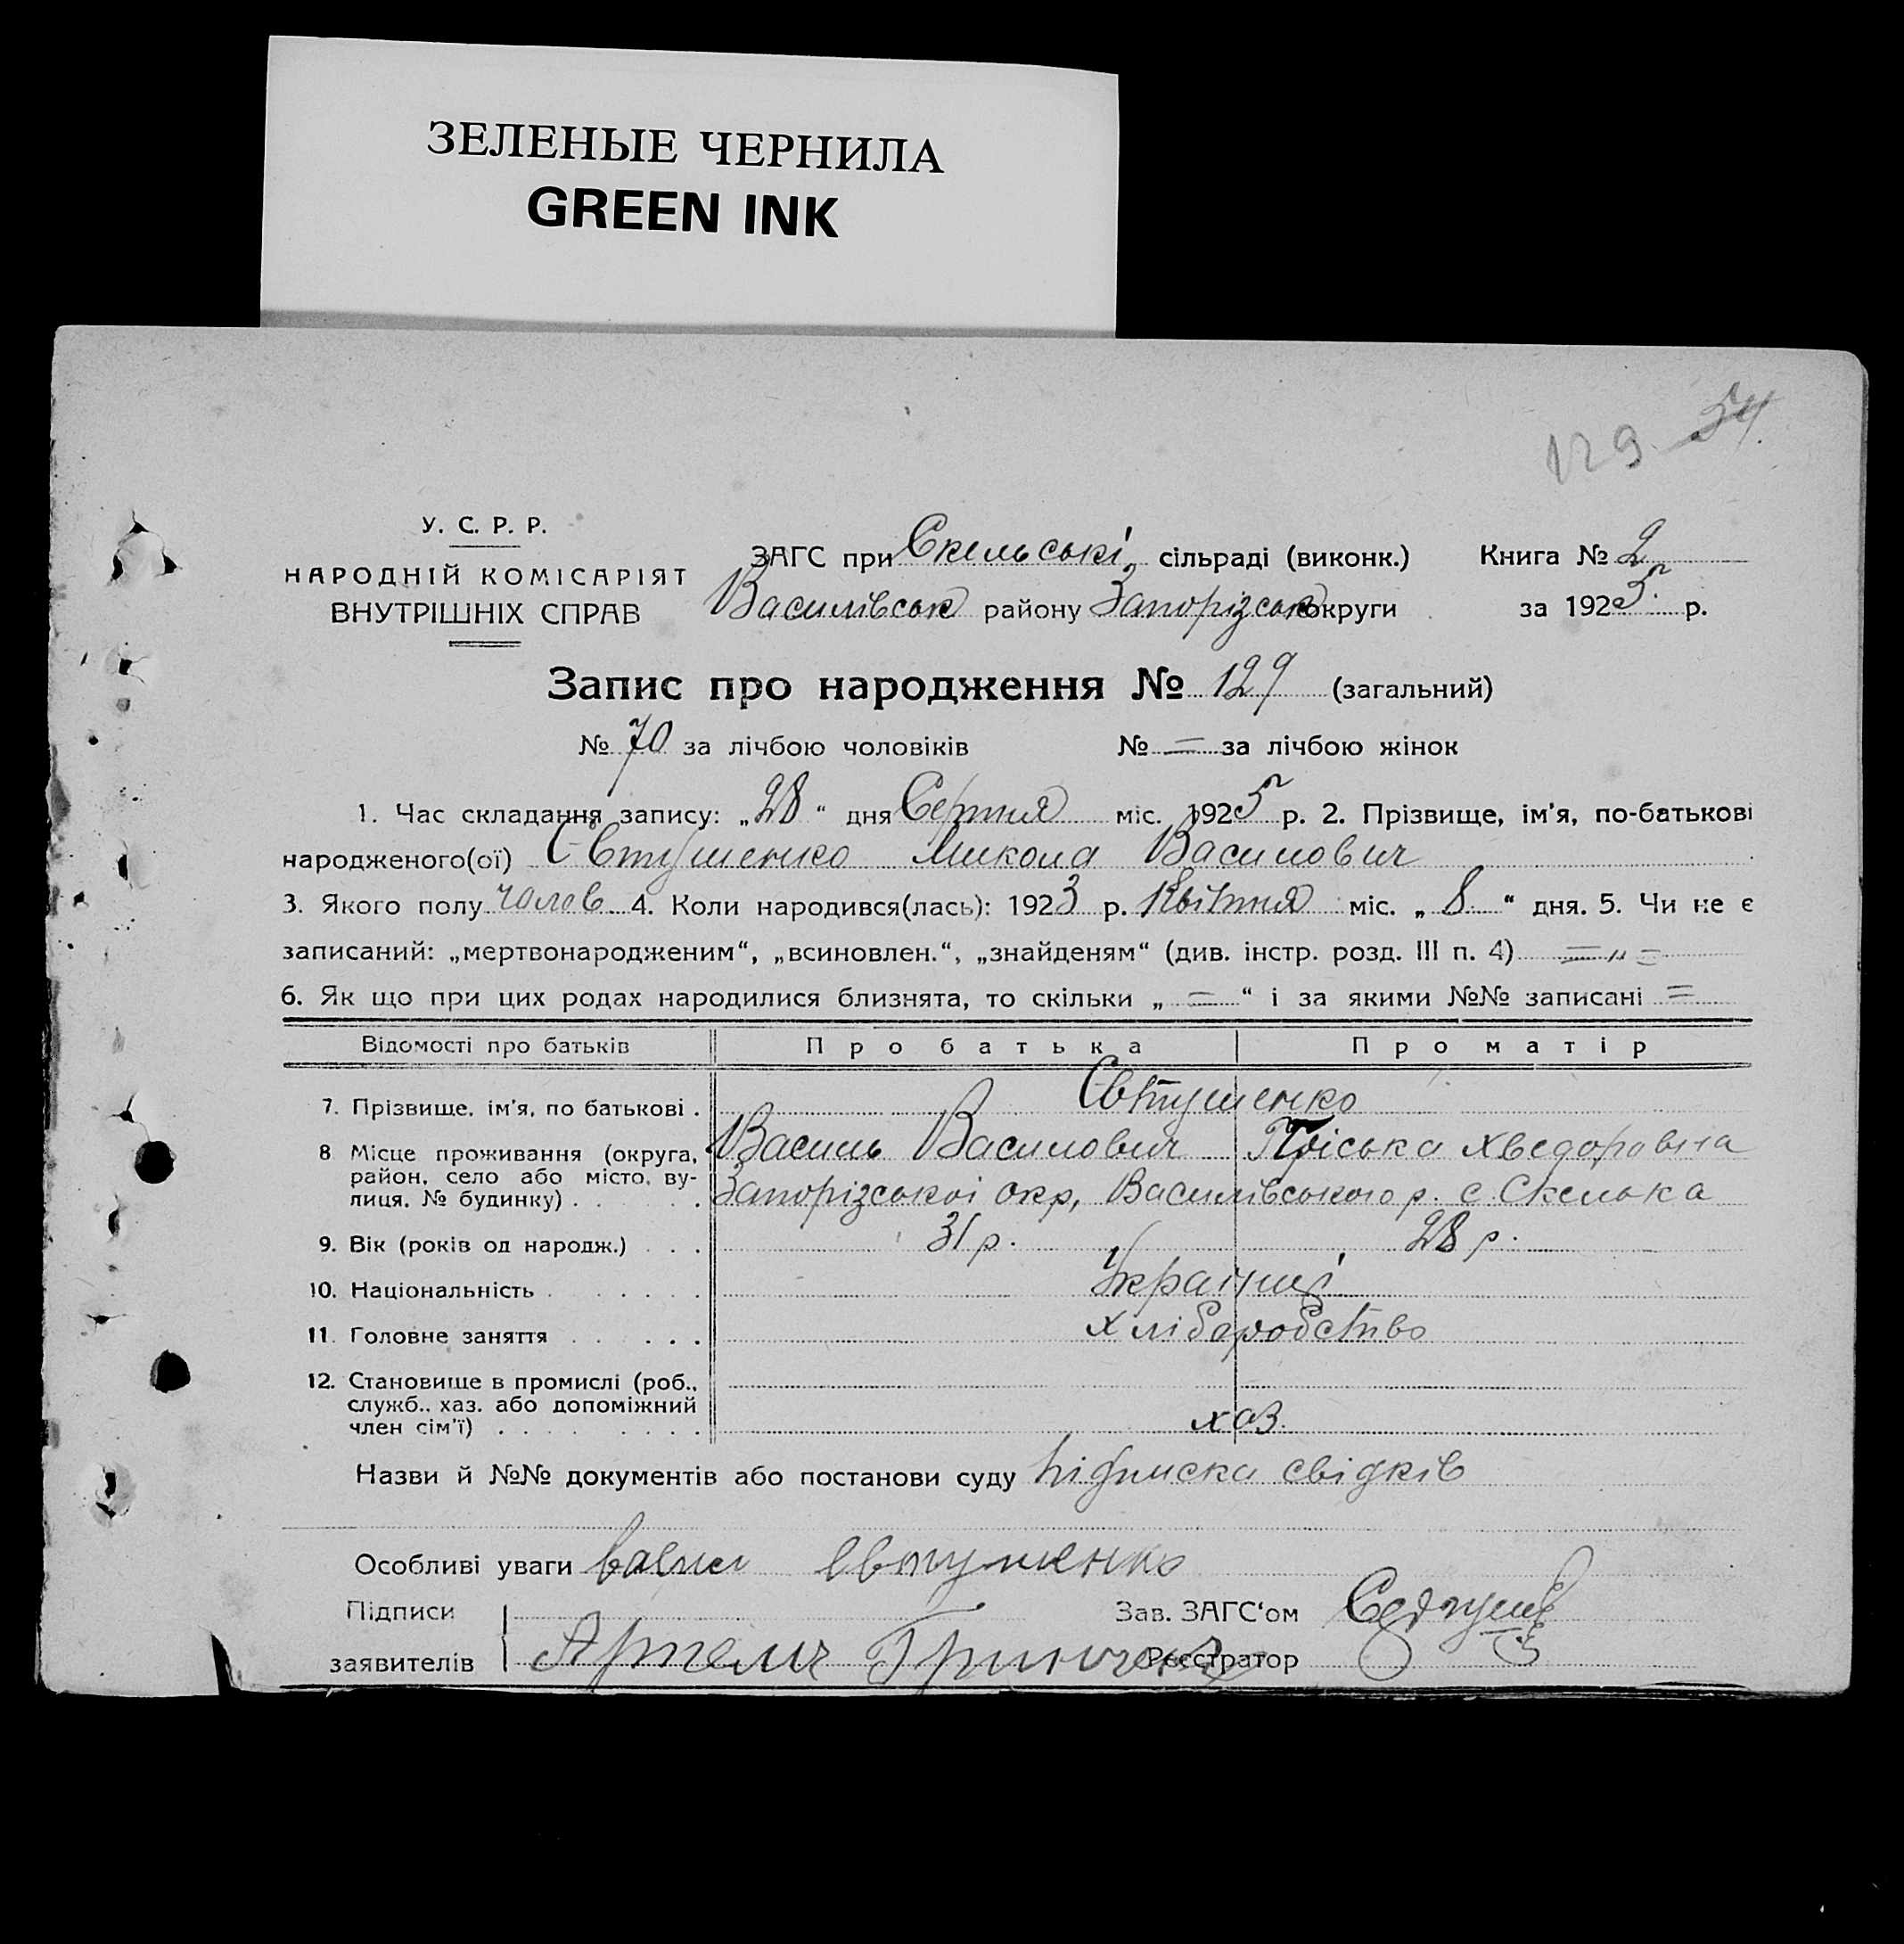 ЗЕЛЕНЫЕ ЧЕРНИЛА
GREEN INK
129 54
У. С. Р. Р.
НАРОДНІЙ КОМІСАРІЯТ
ВНУТРІШНІХ СПРАВ
ЗАГС при Скельські сільраді (виконк.) Книга № 2
Василівськ району Запорізськ округи за 1925 р.
Запис про народження № 129 (загальний)
№ 70 за лічбою чоловіків № = за лічбою жінок
1. Час складання запису: „28“ дня Серпня міс. 1925 р. 2. Прізвище, ім'я, по-батькові
народженого(ої) Євтушенко Микола Василович
3. Якого полу чолов. 4. Коли народився(лась): 1923 р. Квітня міс. „8“ дня. 5. Чи не є
записаний: „мертвонародженим“, „всиновлен.“, „знайденям“ (див. інстр. розд. III п. 4) =„=
6. Як що при цих родах народилися близнята, то скільки „=“ і за якими №№ записані =
Відомості про батьків Про батька Про матір
7. Прізвище, ім'я, по батькові . Євтушенко
Василь Василович Пріська Хведоровна
8 Місце проживання (округа,
район, село або місто, ву-
лиця, № будинку) . . . . . Запорізськоі окр, Василівського р. с. Скелька
9. Вік (років од народж.) . . . 31 р. 28 р.
10. Національність . . . . . . . Украінці
11. Головне заняття . . . . . . хліборобство
12. Становище в промислі (роб.,
служб., хаз. або допоміжний
член сім'ї) . . . . . . . . хаз.
Назви й №№ документів або постанови суду підписка свідків
Особливі уваги Евтушенко
Підписи Зав. ЗАГС'ом
заявителів Реєстратор